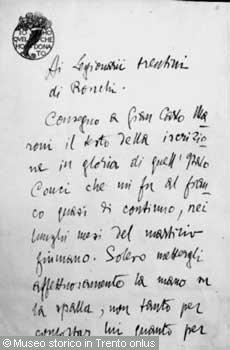 IO HO
QUEL CHE
HO DONATO
Ai Legionarii trentini
di Ronchi.
Consegno a Gian Carlo Ma
roni il testo della iscrizio
ne in gloria di quell'
Conci che mi fu al fian
co quasi di continuo, nei
lunghi mesi del martirio
fiumano. Solevo mettergli
affettuosamente la mano su
la spalla, non tanto per
confortar lui quanto per
© Museo storico in Trento onlus